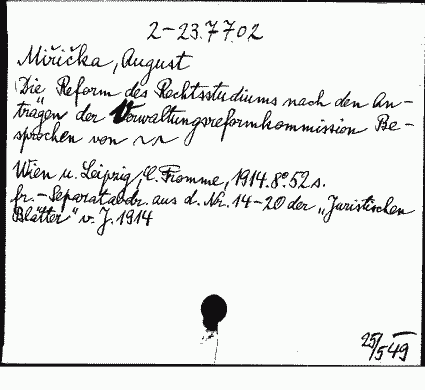 2-23.77.02
Miřička, August
Die Reform des Rechtsstudiums nach den An-
trägen der Verwaltungsreformkommission Be-
sprochen von
Wien u. Leipzig, C. Fromme, 1914. 8° 52 s.
fr. - Separatabdr. aus d. Nr. 14-20 der „Juristischen
Blätter" v. J. 1914
25/549